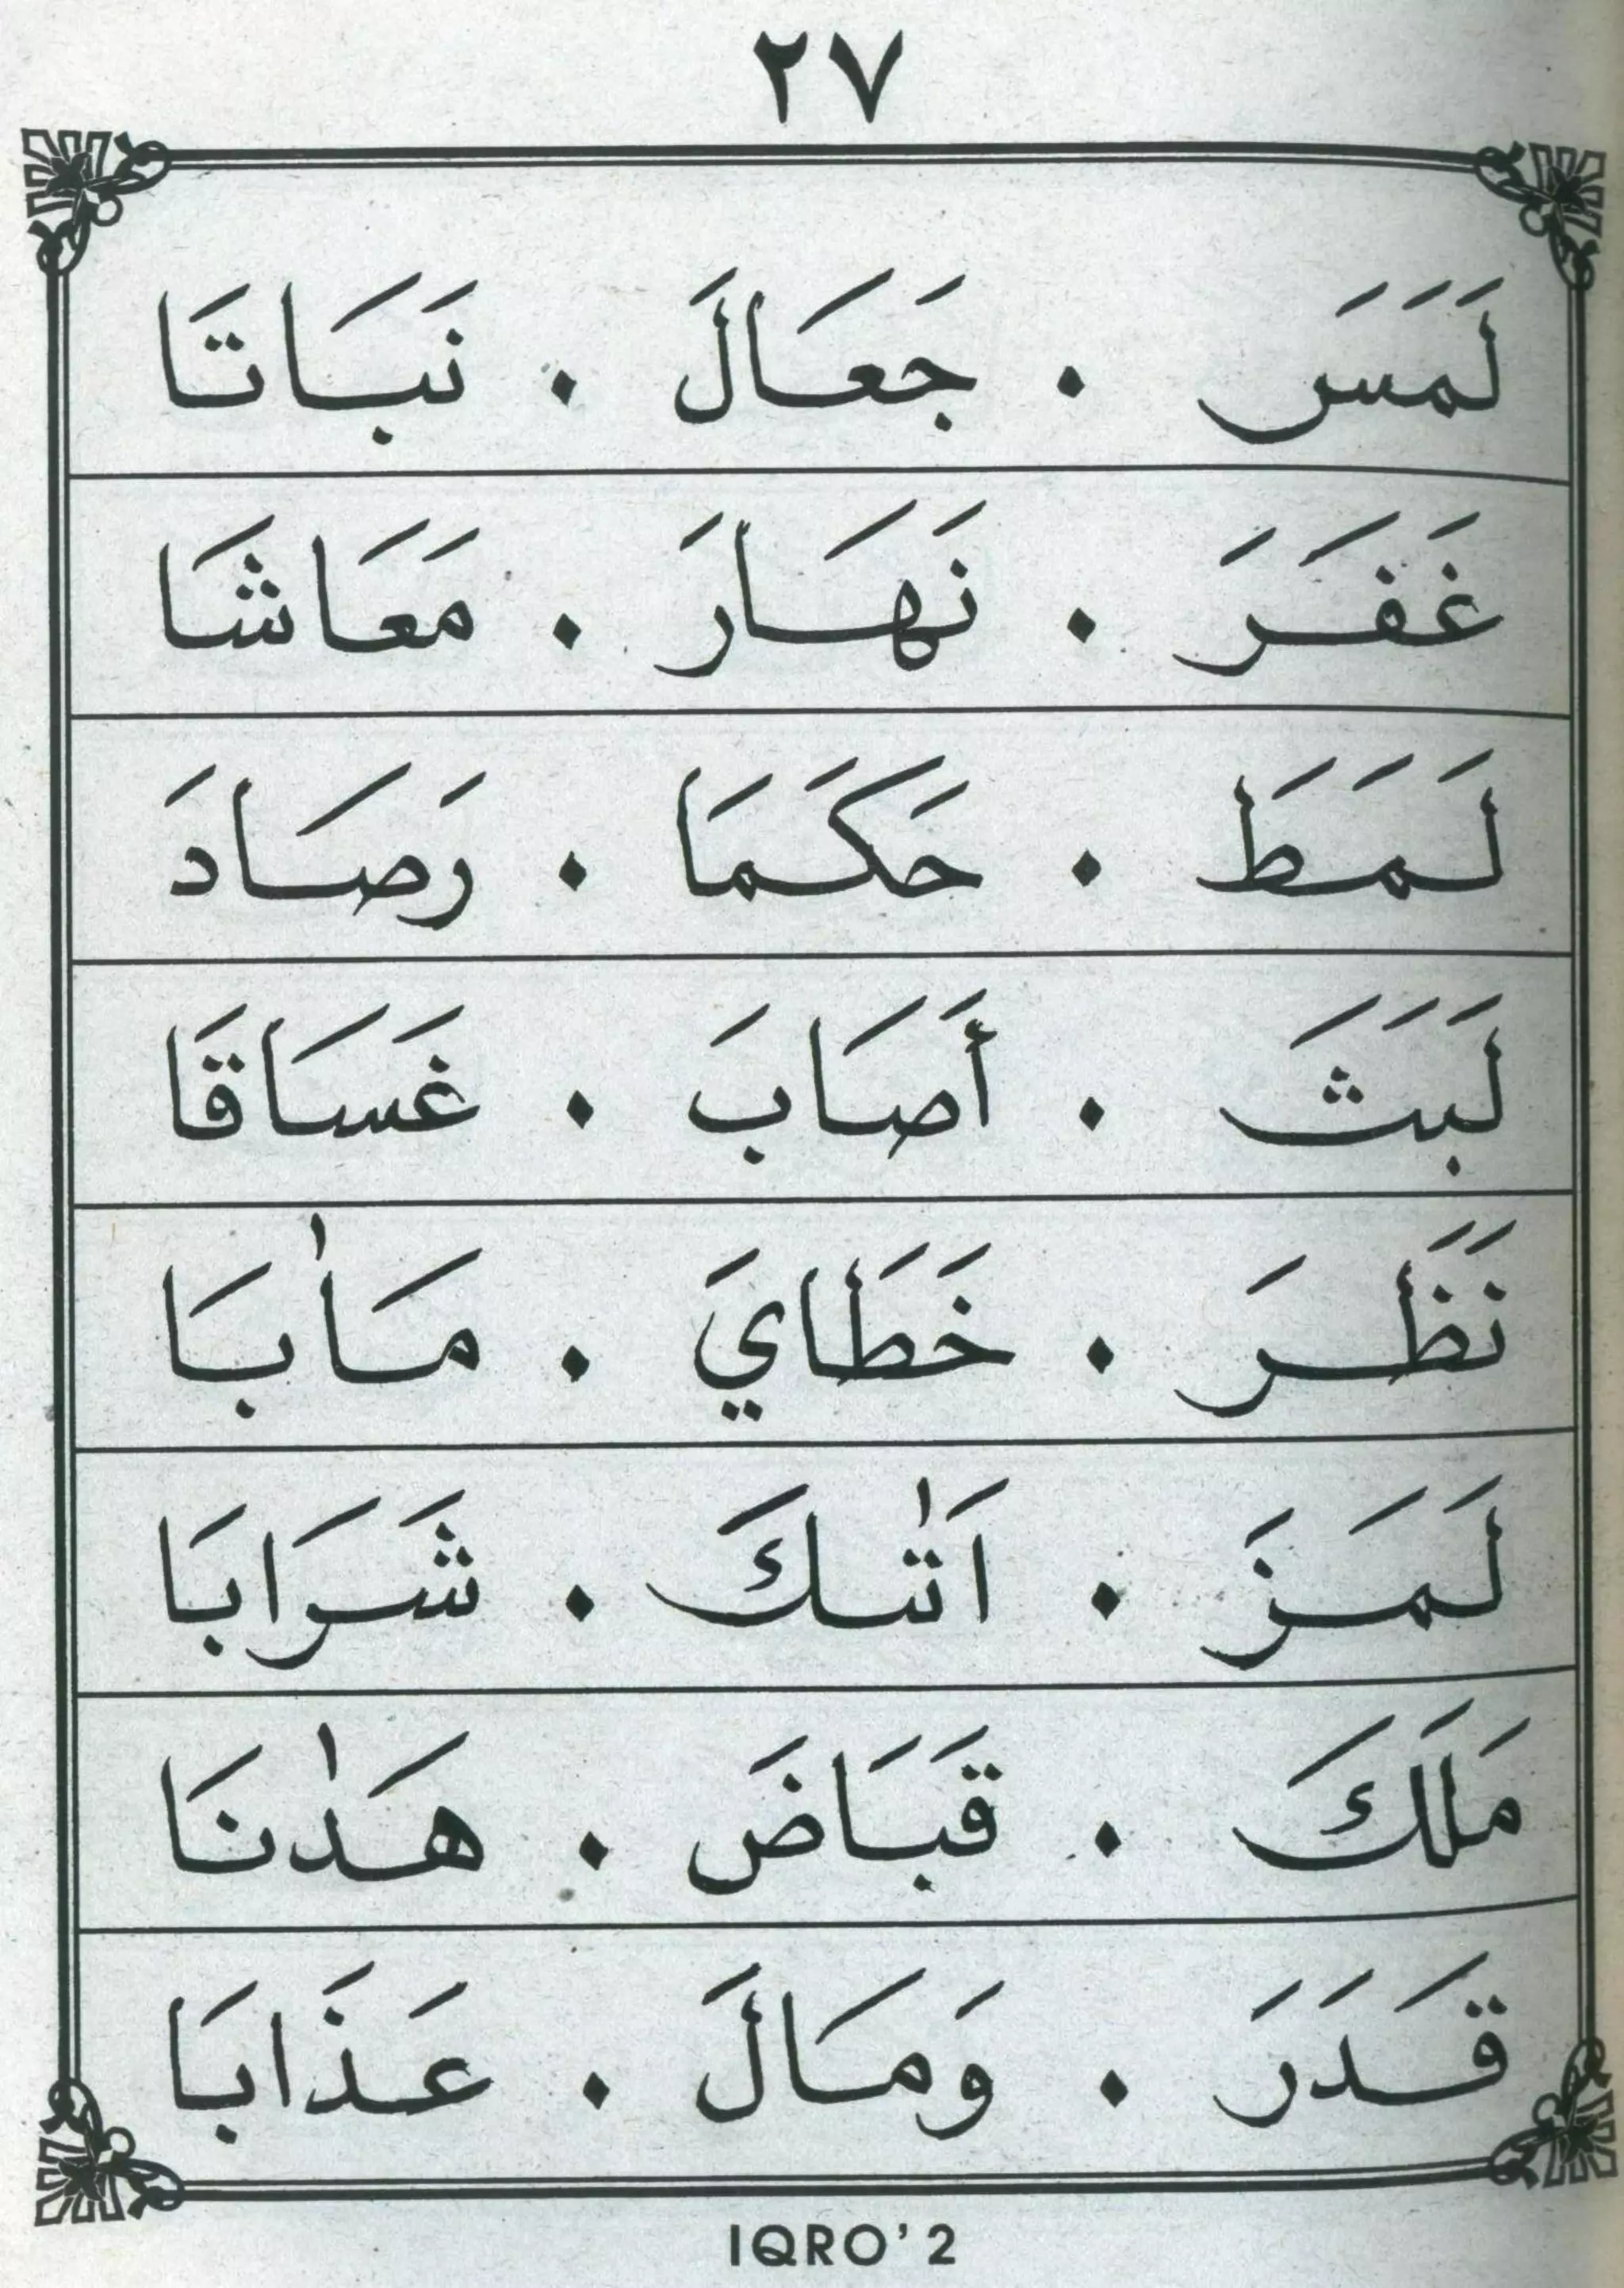 ٢٧
لَمَسَ . جَعَالَ . نَبَاتَا
غَفَرَ . نَهَارَ . مَعَاشَا
لَمَطَ . حَكَمَا . رَصَادَ
لَبَثَ . أَصَابَ . غَسَاقَا
نَظَرَ . خَطَايَ . مَاٰبَا
لَمَزَ . اَتٰىكَ . شَرَابَا
مَلَكَ . قَبَاضَ . هَدٰنَا
قَدَرَ . وَمَالَ . عَذَابَا
IQRO' 2